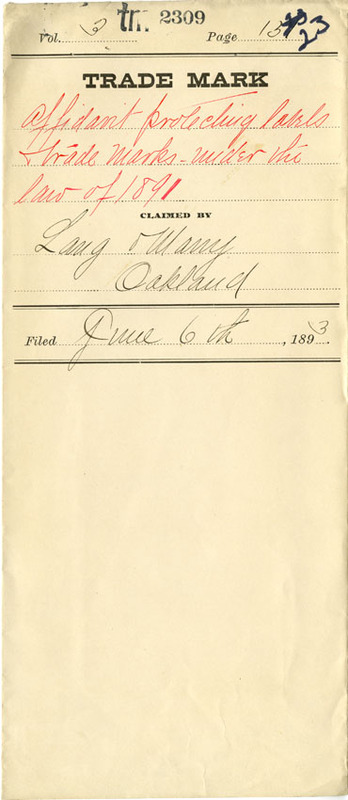 tm 2309
Vol. 3 Page 15
23
TRADE MARK
Affidavit protecting labels
& trade marks - under the
law of 1891
CLAIMED BY
Lang &
Oakland
Filed June 6th, 1893.